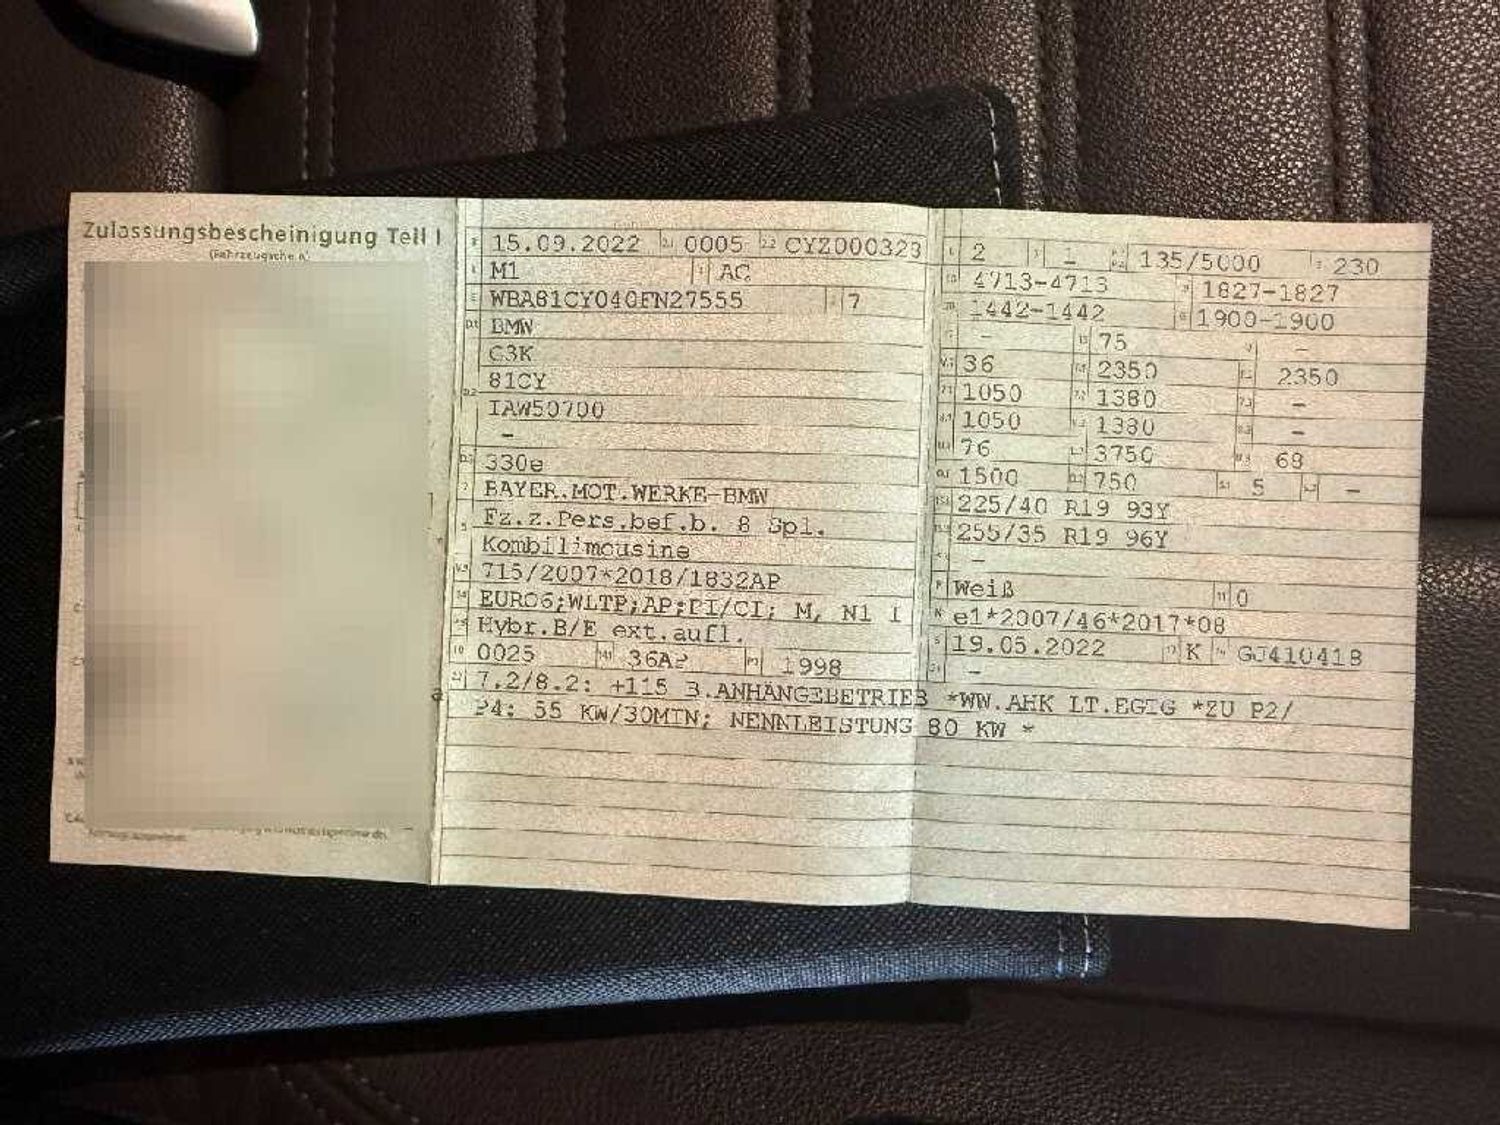 Zulassungsbescheinigung Teil I
(Fahrzeugschein)
15.09.2022 2.1 0005 2.2 CYZ000323
M1 AC
WBA81CY040FN27555 7
D.1 BMW
C3K
81CY
D.2
IAW50700
–
D.3 330e
BAYER.MOT.WERKE-BMW
Fz.z.Pers.bef.b. 8 Spl.
Kombilimousine
715/2007*2018/1832AP
EURO6;WLTP;AP;PI/CI; M, N1 I
Hybr.B/E ext.aufl.
0025 36AP 1998
7.2/8.2: +115 B.ANHÄNGEBETRIEB *WW.AHK LT.EGTG *ZU P2/
P4: 55 KW/30MIN; NENNLEISTUNG 80 KW *
2 – 135/5000 230
4713-4713 1827-1827
1442-1442 1900-1900
– 75 –
36 2350 2350
1050 1380 –
1050 1380 –
76 3750 68
1500 750 5 –
225/40 R19 93Y
255/35 R19 96Y
–
Weiß 0
e1*2007/46*2017*08
19.05.2022 K GJ410418
–